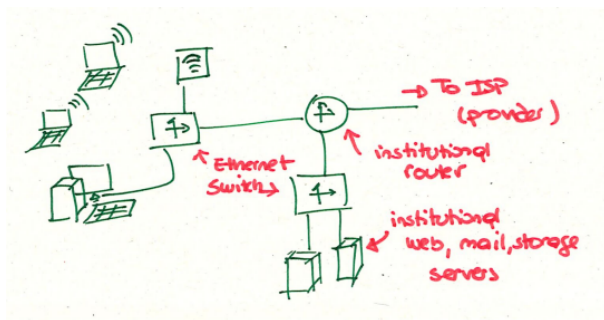 → To ISP
(provider)
institutional
router
Ethernet
Switch
institutional
web, mail, storage
servers